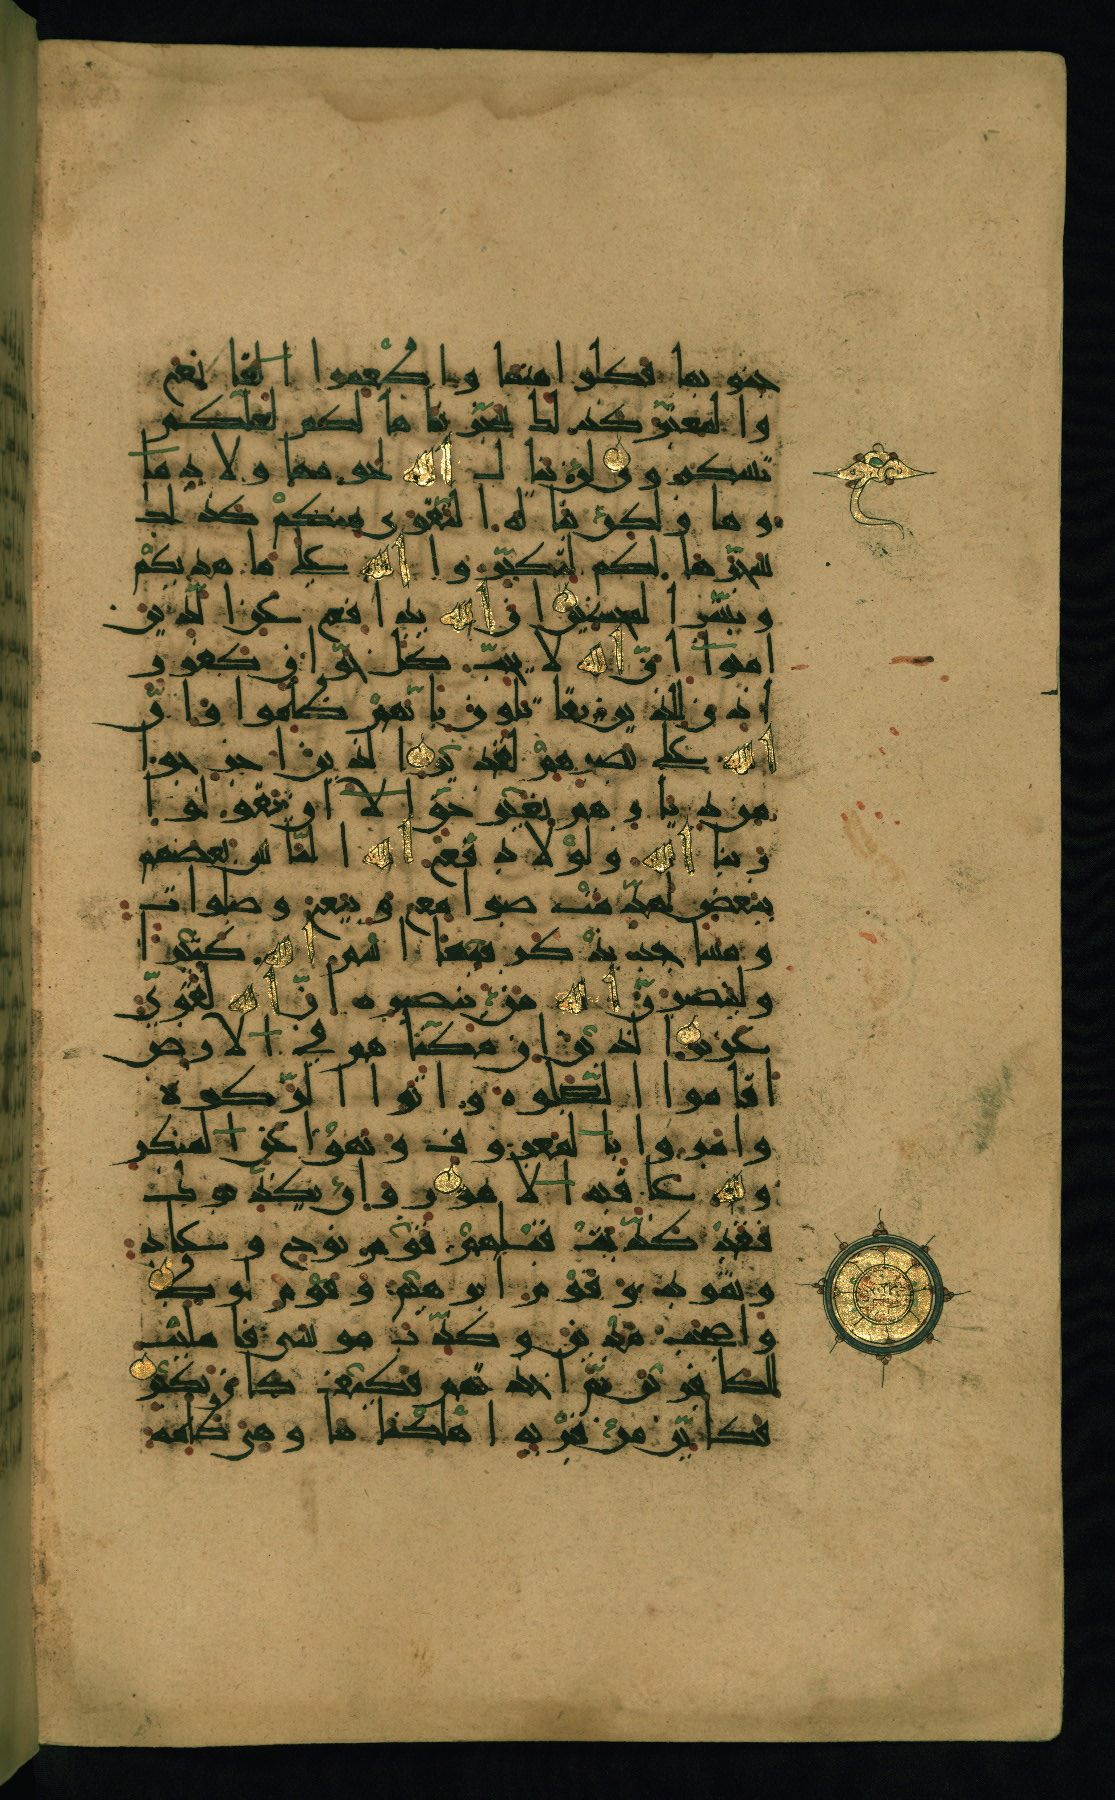 جنوبها فكلوا منها واطعموا القانع
والمعتر كذلك سخرناها لكم لعلكم
تشكرون لن ينال الله لحومها ولا دما
وها ولكن يناله التقوى منكم كذلك
سخرها لكم لتكبروا الله على ما هديكم
وبشر المحسنين ان الله يدافع عن الذين
امنوا ان الله لا يحب كل خوان كفور
اذن للذين يقاتلون بانهم ظلموا وان
الله على نصرهم لقدير الذين اخرجوا
من ديارهم بغير حق الا ان يقولوا
ربنا الله ولولا دفع الله الناس بعضهم
ببعض لهدمت صوامع وبيع وصلوات
ومساجد يذكر فيها اسم الله كثيرا
ولينصرن الله من ينصره ان الله لقوي
عزيز الذين ان مكناهم في الارض
اقاموا الصلوة واتوا الزكوة
وامروا بالمعروف ونهوا عن المنكر
ولله عاقبة الامور وان يكذبوك
فقد كذبت قبلهم قوم نوح وعاد
وثمود وقوم ابرهيم وقوم لوط
واصحب مدين وكذب موسى فامليت
للكافرين ثم اخذتهم فكيف كان نكير
فكاين من قرية اهلكناها وهي ظالمة